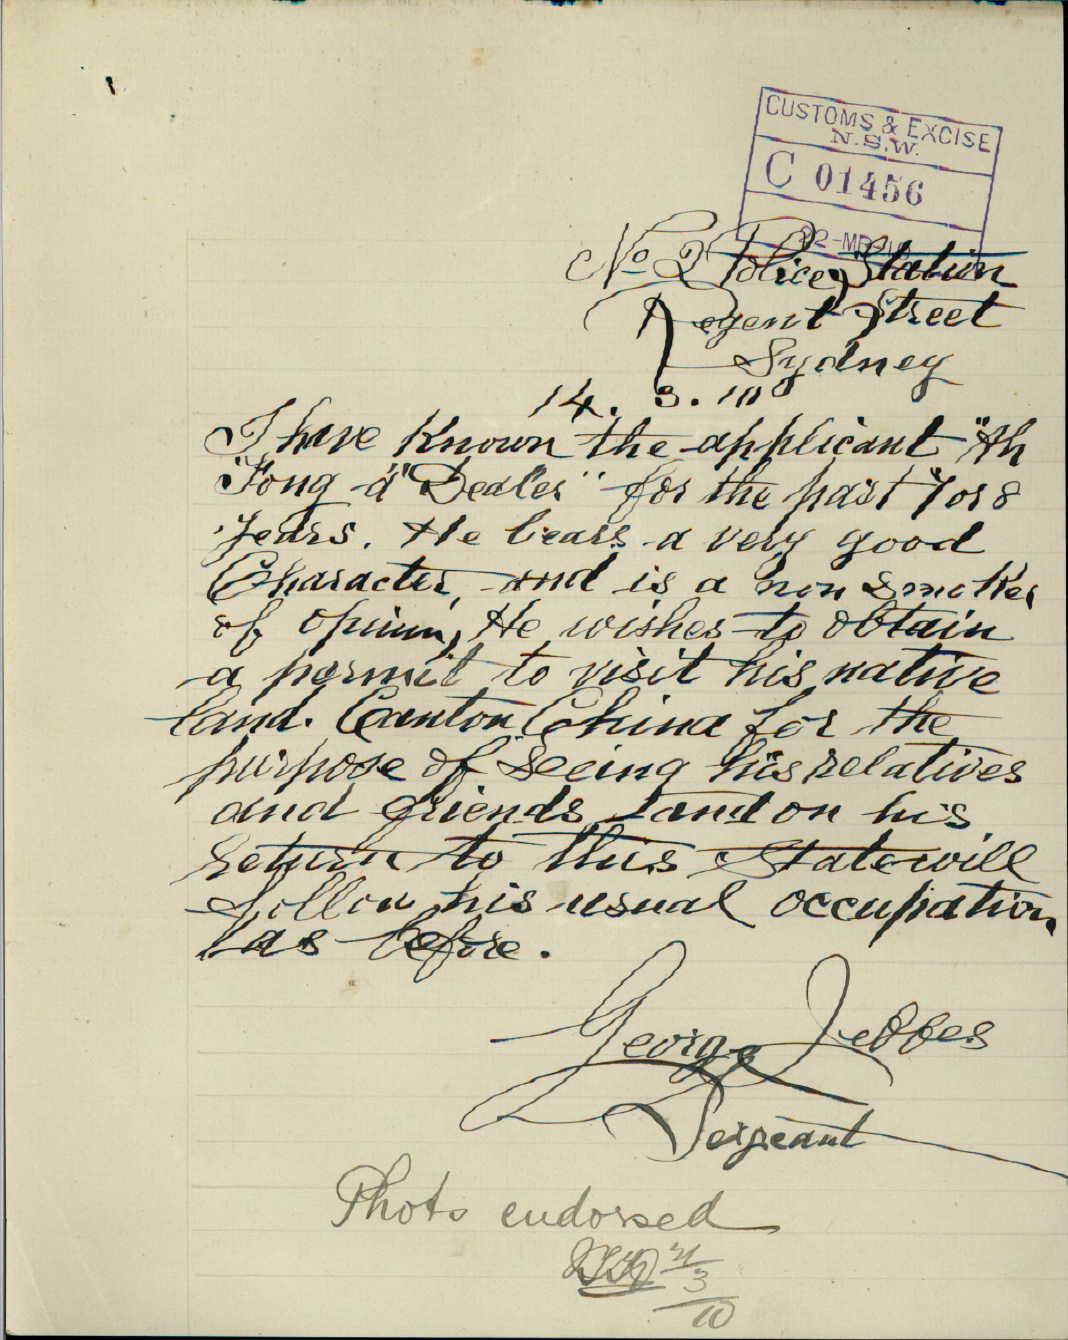 CUSTOMS & EXCISE
N.S.W.
C 01456
22-MR-10
No 2 Police Station
Regent Street
Sydney
14. 3. 10
I have known the applicant "Ah
Fong" a "Dealer" for the past 7 or 8
years. He bears a very good
Character, and is a non smoker
of opium, He wishes to obtain
a permit to visit his native
land. Canton China for the
purpose of seeing his relatives
and friends, and on his
return to this State will
follow his usual occupation,
as before.
George Jeffes
Sergeant
Photo endorsed
3
10